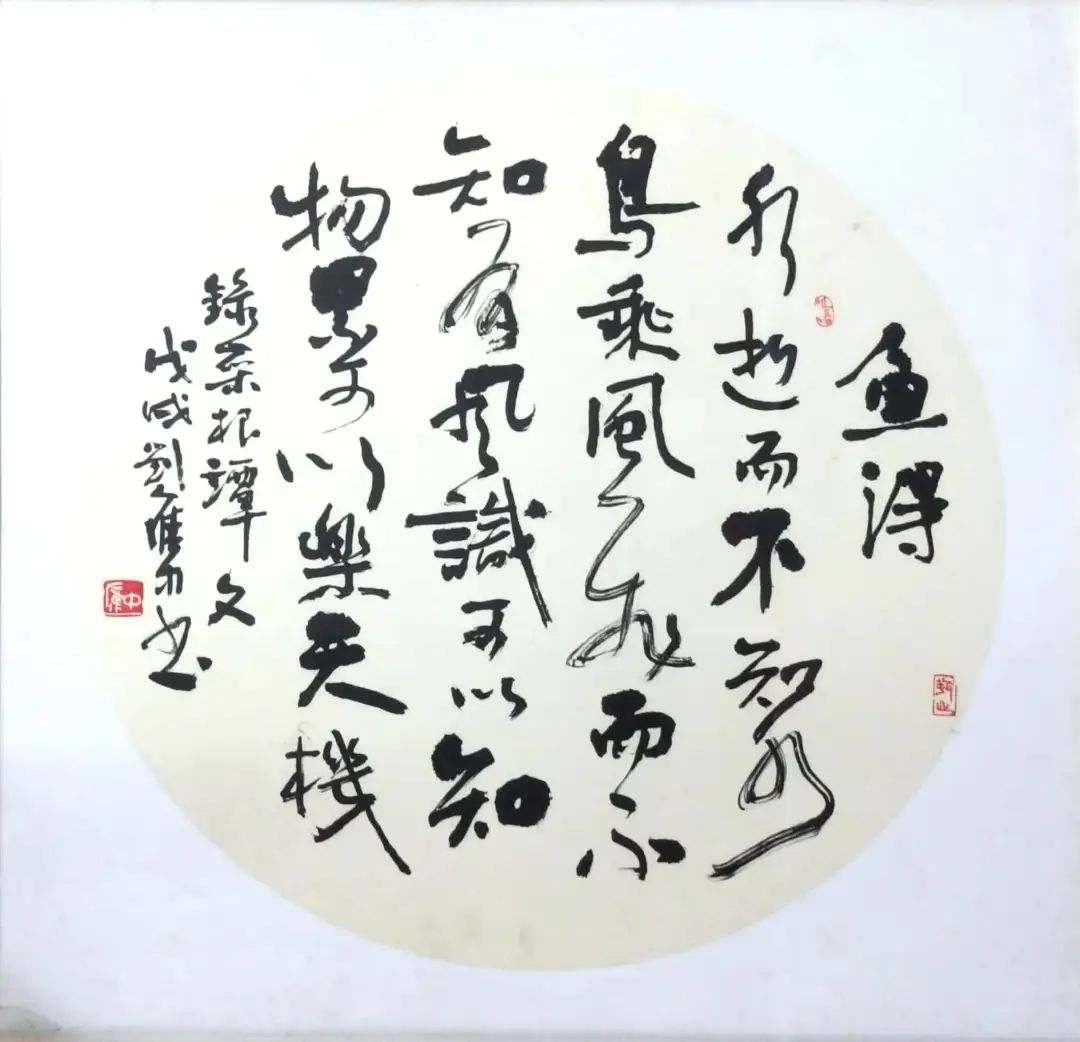 鱼得
水逝而不知水
鳥乘風飛而不
知有风識可以知
物累可以樂天機
錄菜根譚文
戊戌劉書